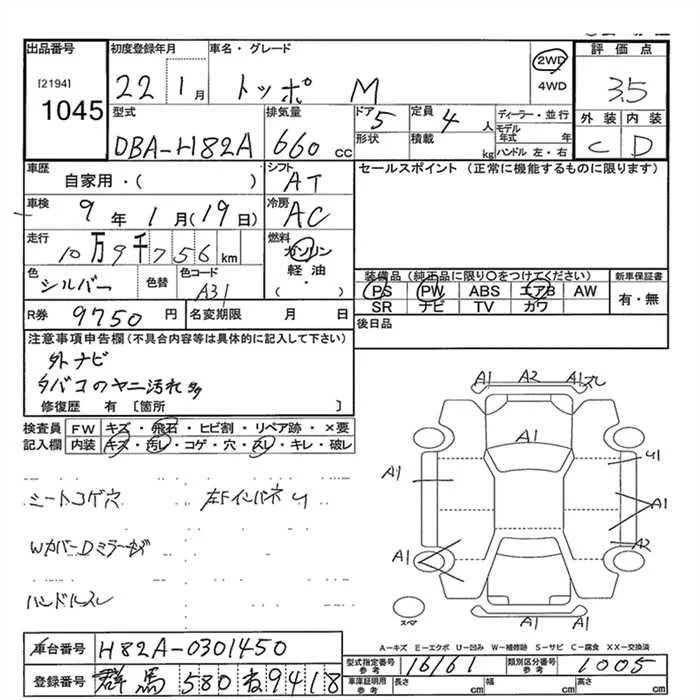 出品番号
[2194]
1045
初度登録年月
22 1月
車名・グレード
トッポ M
2WD
4WD
評価点
3.5
外装 内装
C D
型式
DBA-H82A
排気量
660 CC
ドア 5
形状
定員 4 人
積載 kg
ディーラー・並行
モデル年式 年
ハンドル 左・右
車歴
自家用・( )
シフト
AT
セールスポイント (正常に機能するものに限ります)
車検
9年1月(19日)
冷房
AC
走行
10万9千756km
燃料
ガソリン
軽油・
( )
色
シルバー
色替
色コード
A31
装備品 (純正品に限り○をつけてください)
PS PW ABS エアB AW
SR ナビ TV カワ
新車保証書
有・無
R券 9750円
名変期限 月 日
後日品
注意事項申告欄(不具合内容等は具体的に記入して下さい)
外ナビ
タバコのヤニ汚れ
修復歴 有 〔箇所 〕
検査員記入欄
FW キズ・飛石・ヒビ割・リペア跡・×要
内装 キズ・汚レ・コゲ・穴・スレ・キレ・破レ
シートコゲ穴
WカバーDミラーキズ
ハンドルスレ
A1 A2 A1スレ
A1
A1
A1
A1
A2
A1
A1
スペア
A-キズ E-エクボ U-凹み W-補修跡 S-サビ C-腐食 XX-交換済
車台番号 H82A-0301450
登録番号 群馬 580 ね 9418
型式指定番号 参考 16161
類別区分番号 参考 1005
車庫証明用 参考
長さ cm
幅 cm
高さ cm